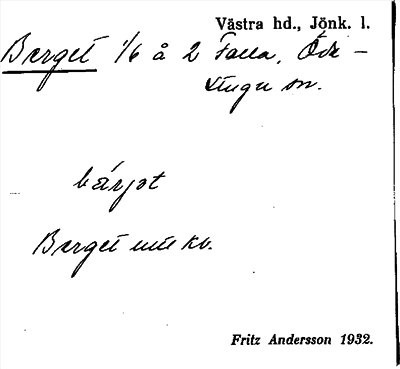 Västra hd., Jönk. l.
Berget 1/6 å 2 Falla, Öde-
stugu sn.
bärjet
Berget
Fritz Andersson 1932.